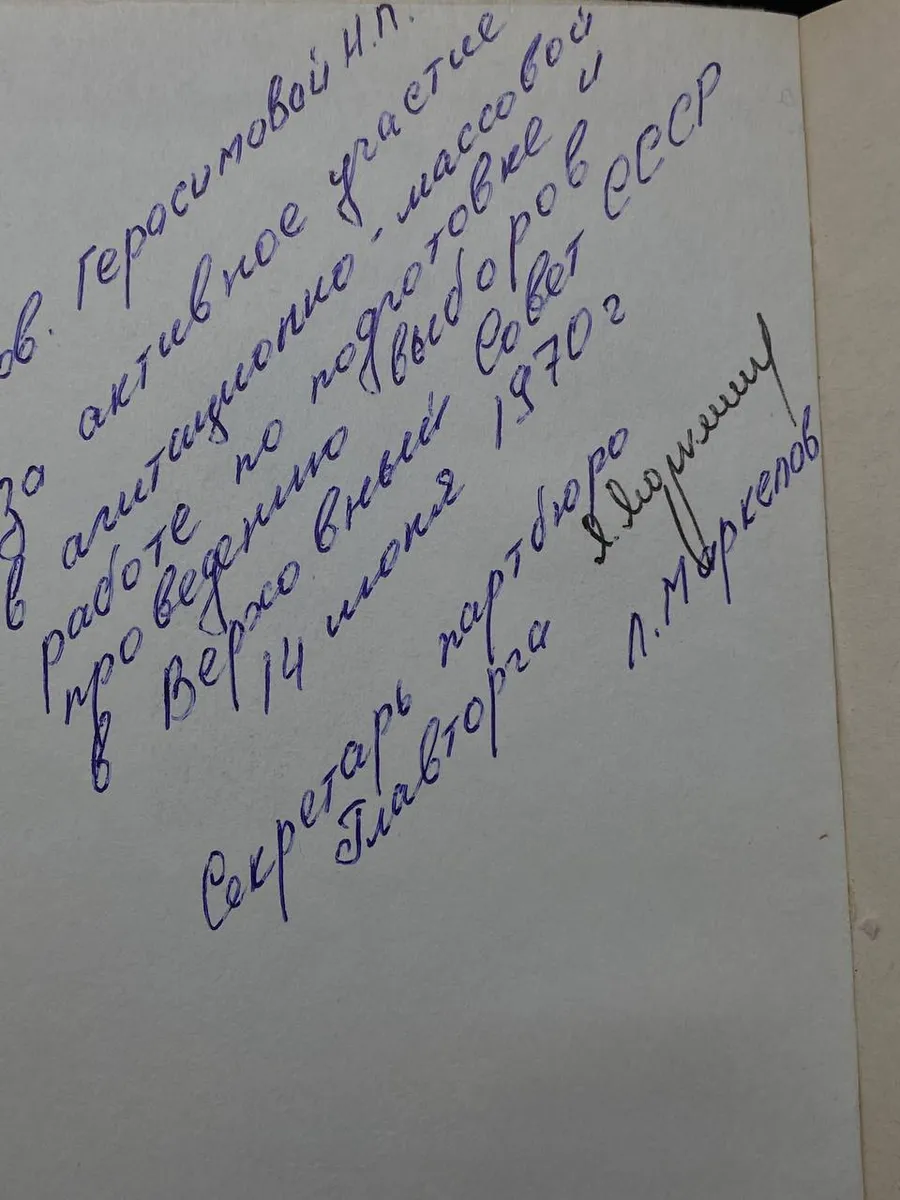 ов. Герасимовой Н.П.
За активное участие
в агитационно-массовой
работе по подготовке и
проведению выборов
в Верховный Совет СССР
14 июня 1970 г
Секретарь партбюро
Главторга
Л. Маркелов